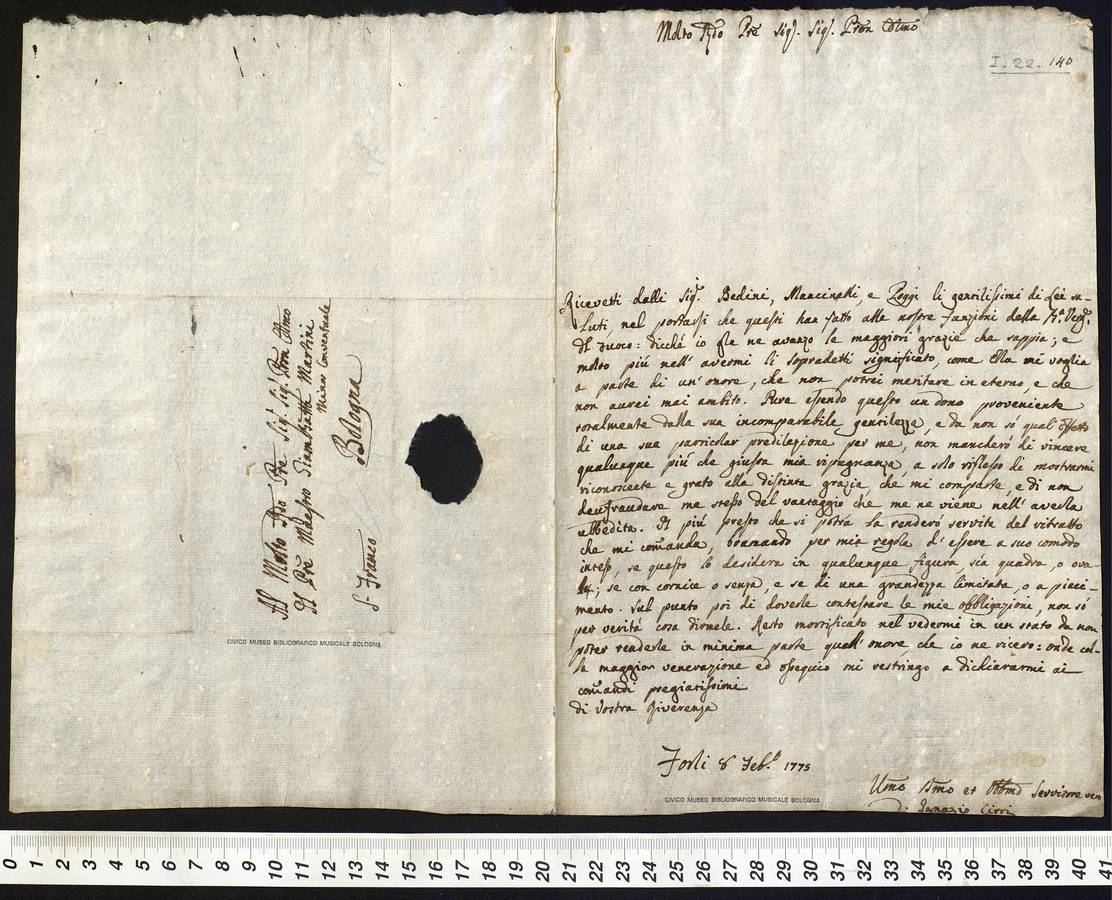 Al Molto Rdo Pre Sig. Sig. Pron Colmo
Il Pre Maestro Giambatta Martini
Minor Conventuale
Bologna
S. Franco
CIVICO MUSEO BIBLIOGRAFICO MUSICALE BOLOGNA
Molto Rdo Pre Sig. Sig. Pron Colmo
I. 22. 140
Ricevetti dalli Sig. Bedini, Mancinelli, e Poggi li gentilissimi di Lei sa-
luti, nel portassi che questi han fatto alle nostre funzioni della Bª Verg.
del Fuoco: dicché io gle ne avanzo le maggiori grazie che sappia; e
molto più nell' avermi li sopradetti significato, come Ella mi voglia
a parte di un' onore, che non potrei meritare in eterno, e che
non aurei mai ambito. Pure essendo questo un dono proveniente
totalmente dalla sua incomparabile gentilezza, e da non sò qual' effetto
di una sua particolar predilezione per me, non mancherò di vincere
qualunque più che giusta mia ripugnanza, a solo riflesso di mostrarmi
riconoscente e grato alla distinta grazia che mi comparte, e di non
deufraudare me stesso del vantaggio che me ne viene nell' averla
ubbedita. Il più presto che si potrà la renderò servita del ritratto
che mi comanda, bramando per mia regola d' essere a suo comodo
inteso, se questo lo desidera in qualunque figura sia quadra, o ova-
le; se con cornice o senza, e se di una grandezza limitata, o a piaci-
mento. Sul punto poi di doverle contestare le mie obbligazioni, non sò
per verità cosa dirmele. Resto mortificato nel vedermi in un stato da non
poter renderle in minima parte quell' onore, che io ne ricevo: onde col-
la maggior venerazione ed ossequio mi restringo a dichiararmi ai
comandi pregiatissimi
di Vostra Riverenza
Forlì 8 Feb.º 1775
Umo Dmo et Obbmo Servitore vero
Ignazio Cirri
CIVICO MUSEO BIBLIOGRAFICO MUSICALE BOLOGNA
0 1 2 3 4 5 6 7 8 9 10 11 12 13 14 15 16 17 18 19 20 21 22 23 24 25 26 27 28 29 30 31 32 33 34 35 36 37 38 39 40 41